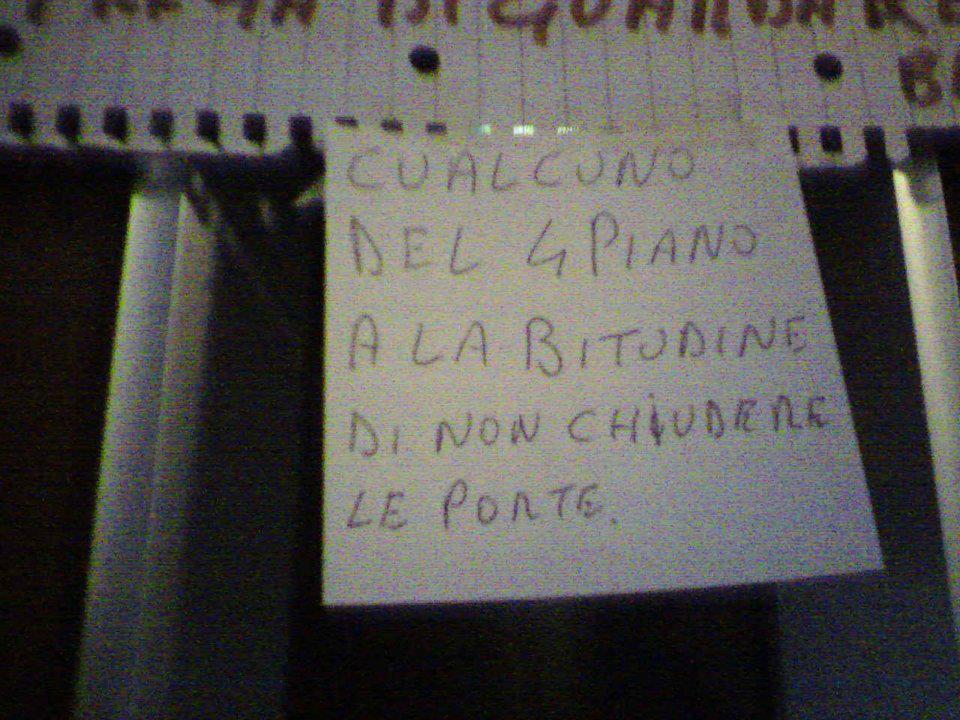 DI GUARDARE
CUALCUNO
DEL 4 PIANO
A LA BITUDINE
DI NON CHIUDERE
LE PORTE.